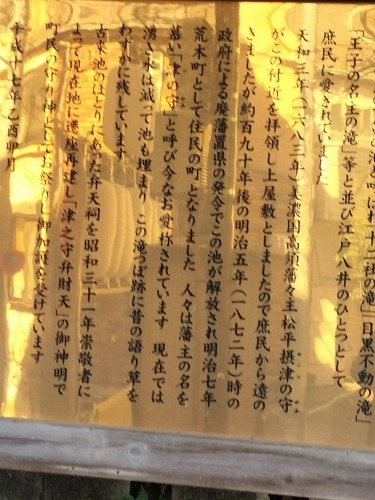 の池と呼ばれ十二社の滝」「目黒不動の滝」
「王子の名主の滝」等と並び江戸八井のひとつとして
庶民に愛されていました
天和三年（一六八三年）美濃国高須藩々主松平摂津の守
がこの付近を拝領し上屋敷としましたので庶民から遠の
きましたが約百九十年後の明治五年（一八七二年）時の
政府による廃藩置県の発令でこの池が解放され明治七年
荒木町として住民の町となりました　人々は藩主の名を
慕い「津の守」と呼び今なお愛称されています　現在では
湧き水は減って池も埋まり　この滝つぼ跡に昔の語り草を
わずかに残しています
古来池のほとりにあった弁天祠を昭和三十一年崇敬者に
よって現在地に遷座再建し「津之守弁財天」の御神明で
町民の守り神としてお祭りし御加護を受けています
平成十七年乙酉卯月